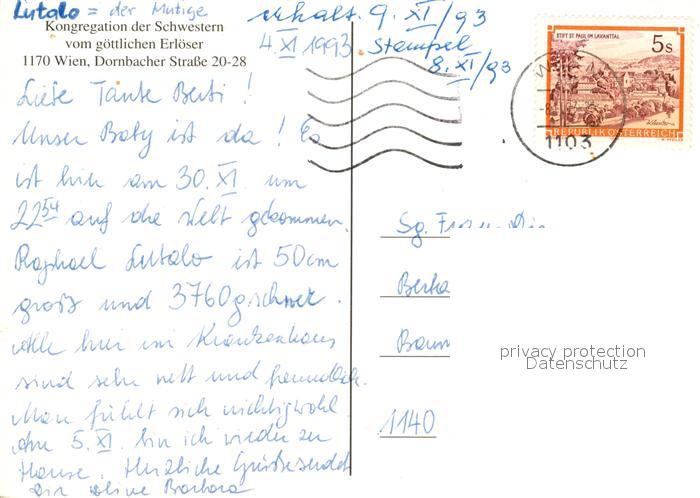 Lutalo = der Mutige
Kongregation der Schwestern
vom göttlichen Erlöser
1170 Wien, Dornbacher Straße 20-28
erhalt. 9. XI/93
4. XI 1993. Stempel
8. XI/93
STIFT ST. PAUL IM LAVANTTAL
5 S
REPUBLIK ÖSTERREICH
1103
Liebe Tante Berti!
Unser Baby ist da! Es
ist hier am 30. XI um
22 54 auf die Welt gekommen.
Raphael Lutalo ist 50cm
groß und 3760g schwer.
Alle hier im Krankenhaus
sind sehr nett und freundlich.
Man fühlt sich richtig wohl.
Am 5. XI bin ich wieder zu
Hause. Herzliche Grüße sendet
Dir Barbara
Sg.
Berta
1140
privacy protection
Datenschutz